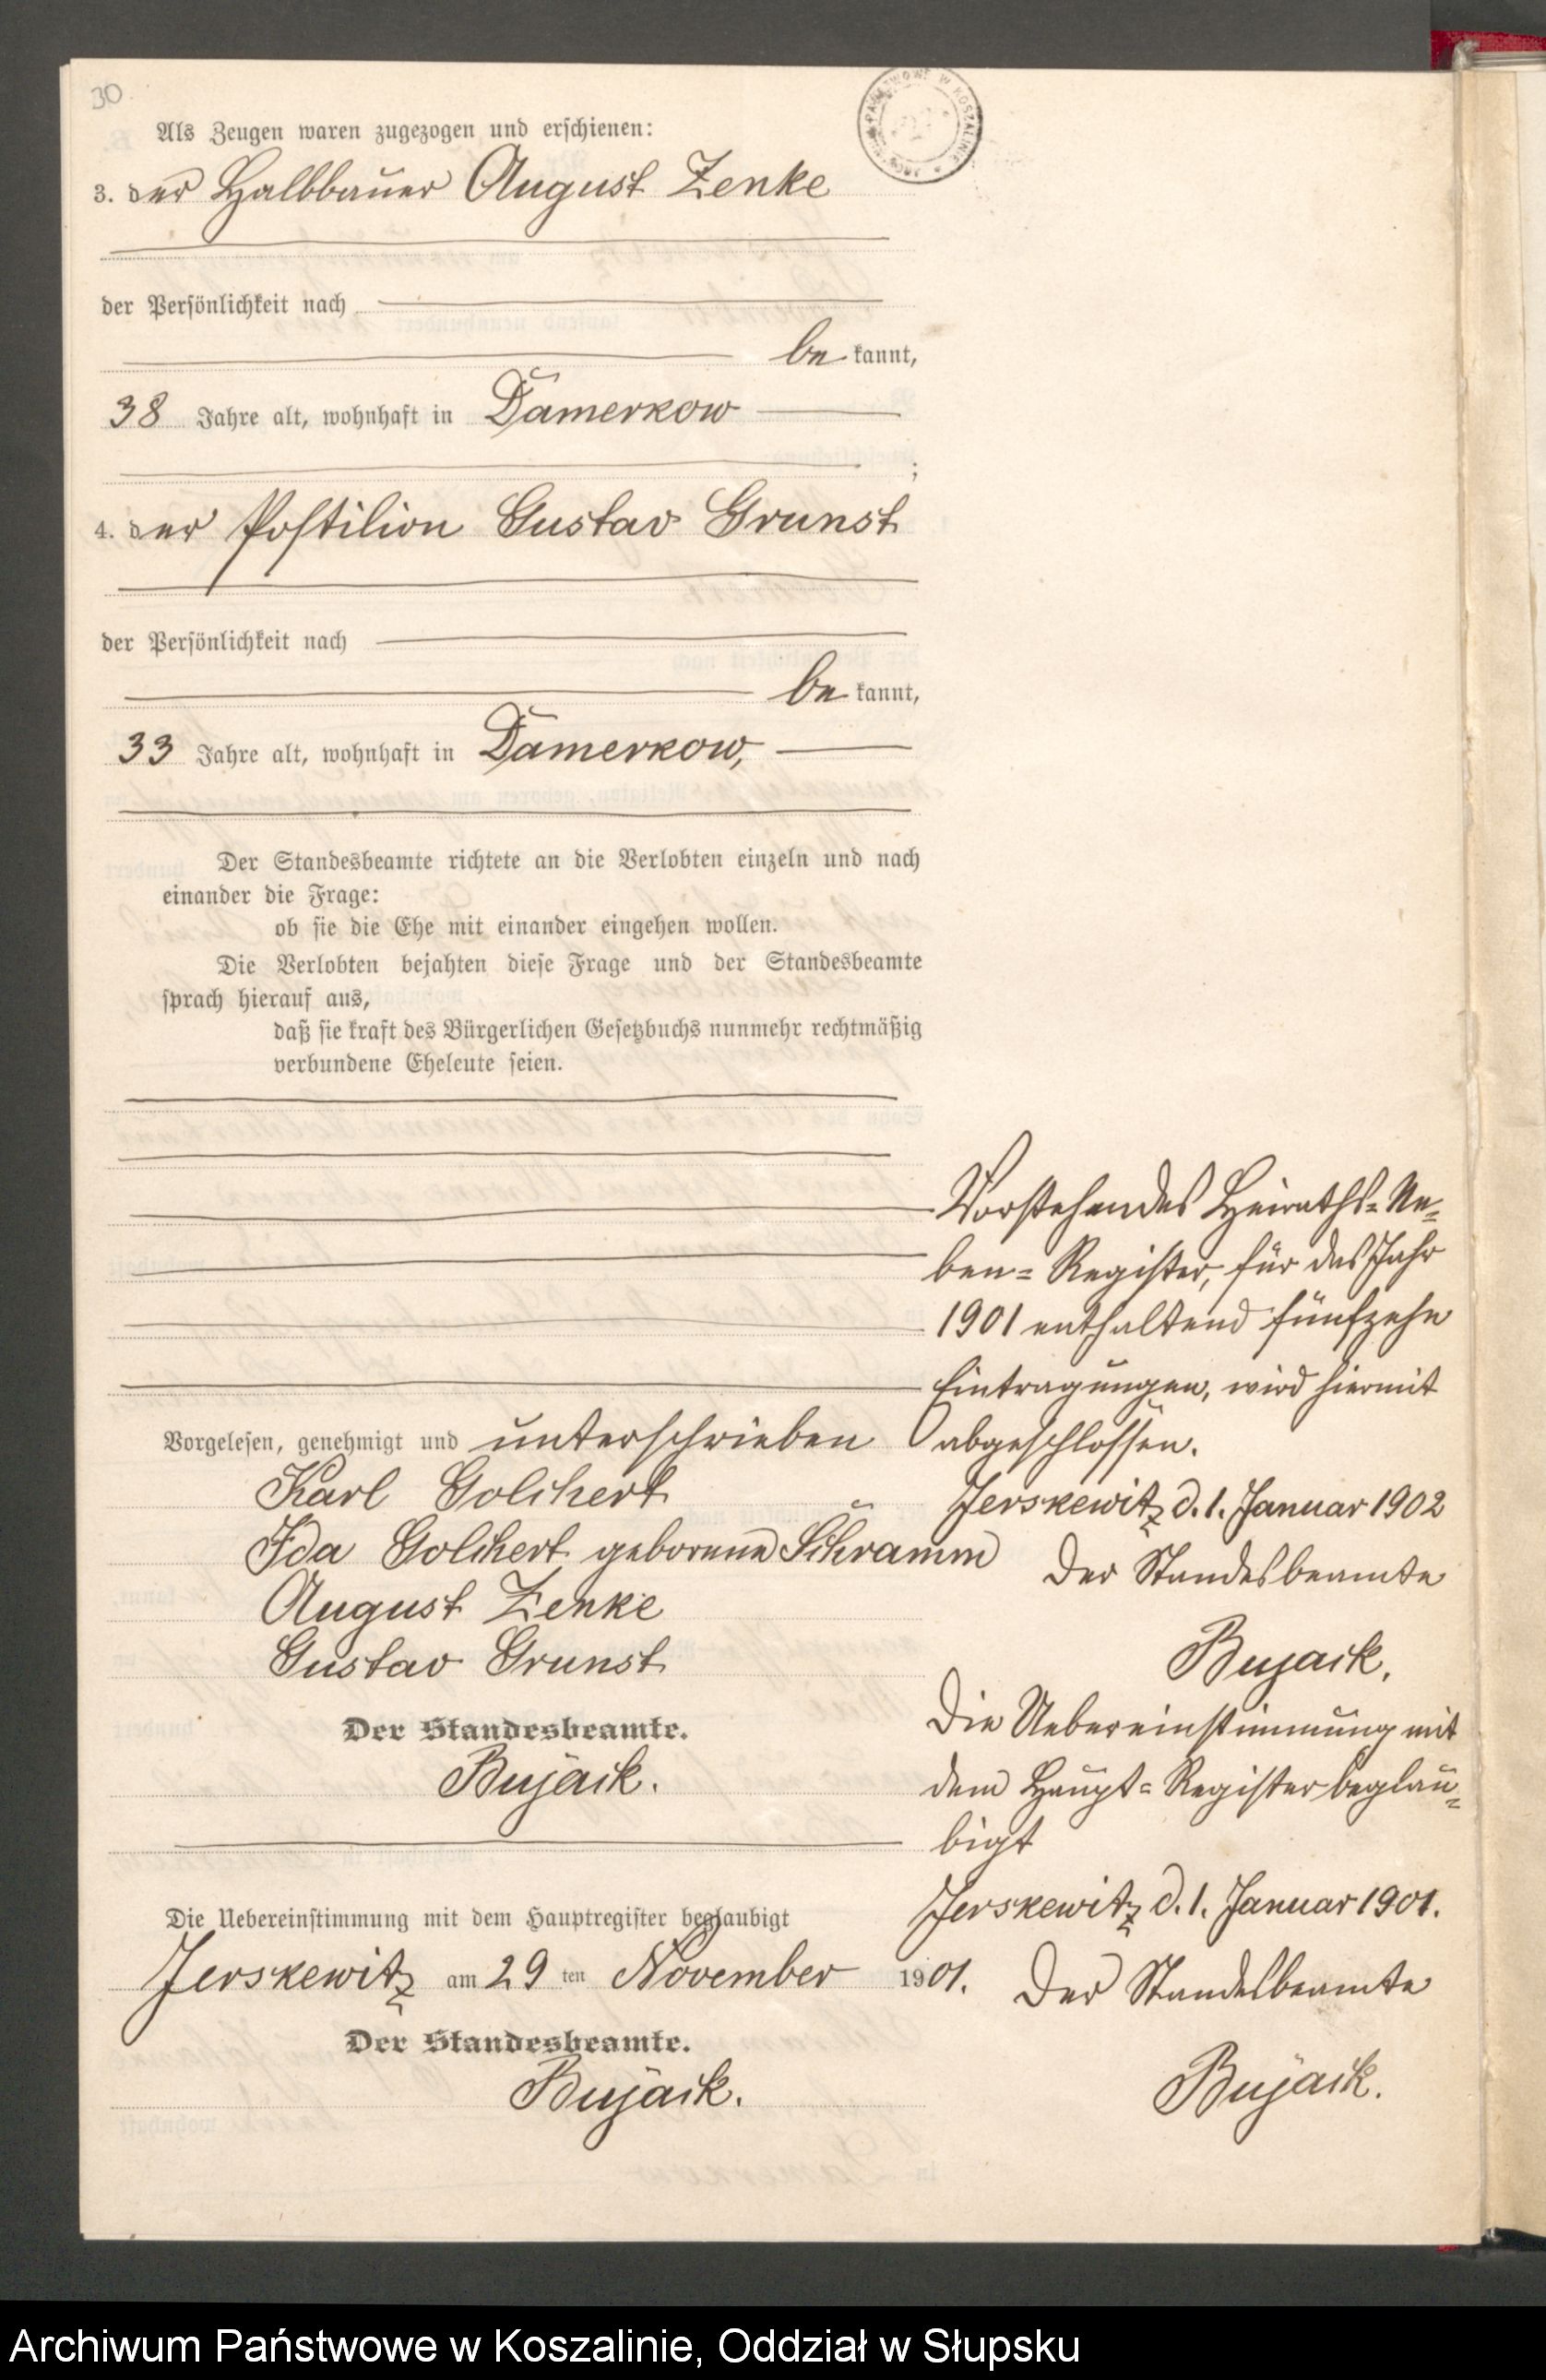 30
Als Zeugen waren zugezogen und erschienen:
3. der Halbbauer August Zenke
der Persönlichkeit nach
be kannt,
38 Jahre alt, wohnhaft in Damerkow
;
4. der Postilion Gustav Grunst
der Persönlichkeit nach
be kannt,
33 Jahre alt, wohnhaft in Damerkow,
Der Standesbeamte richtete an die Verlobten einzeln und nach
einander die Frage:
ob sie die Ehe mit einander eingehen wollen.
Die Verlobten bejahten diese Frage und der Standesbeamte
sprach hierauf aus,
daß sie kraft des Bürgerlichen Gesetzbuchs nunmehr rechtmäßig
verbundene Eheleute seien.
Vorgelesen, genehmigt und unterschrieben
Karl Golchert
Ida Golchert geborene Schramm
August Zenke
Gustav Grunst
Der Standesbeamte.
Bujack.
Die Uebereinstimmung mit dem Hauptregister beglaubigt
Jerskewitz am 29 ten November 1901.
Der Standesbeamte.
Bujack.
Vorstehendes Heiraths=Ne=
ben=Register, für das Jahr
1901 enthaltend fünfzehn
Eintragungen, wird hiermit
abgeschlossen.
Jerskewitz d. 1. Januar 1902
Der Standesbeamte
Bujack.
Die Uebereinstimmung mit
dem Haupt=Register beglau=
bigt
Jerskewitz d. 1. Januar 1901.
Der Standesbeamte
Bujack.
Archiwum Państwowe w Koszalinie, Oddział w Słupsku